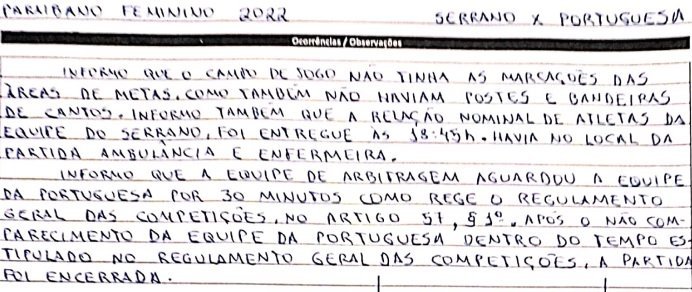 PARAIBANO FEMININO 2022 SERRANO X PORTUGUESA
Ocorrências / Observações
INFORMO QUE O CAMPO DE JOGO NÃO TINHA AS MARCAÇÕES DAS
ÁREAS DE METAS, COMO TAMBÉM NÃO HAVIAM POSTES E BANDEIRAS
DE CANTOS. INFORMO TAMBÉM QUE A RELAÇÃO NOMINAL DE ATLETAS DA
EQUIPE DO SERRANO, FOI ENTREGUE ÀS 18:45h. HAVIA NO LOCAL DA
PARTIDA AMBULÂNCIA E ENFERMEIRA.
INFORMO QUE A EQUIPE DE ARBITRAGEM AGUARDOU A EQUIPE
DA PORTUGUESA POR 30 MINUTOS COMO REGE O REGULAMENTO
GERAL DAS COMPETIÇÕES, NO ARTIGO 57, § 1º. APÓS O NÃO COM-
PARECIMENTO DA EQUIPE DA PORTUGUESA DENTRO DO TEMPO ES-
TIPULADO NO REGULAMENTO GERAL DAS COMPETIÇÕES, A PARTIDA
FOI ENCERRADA.